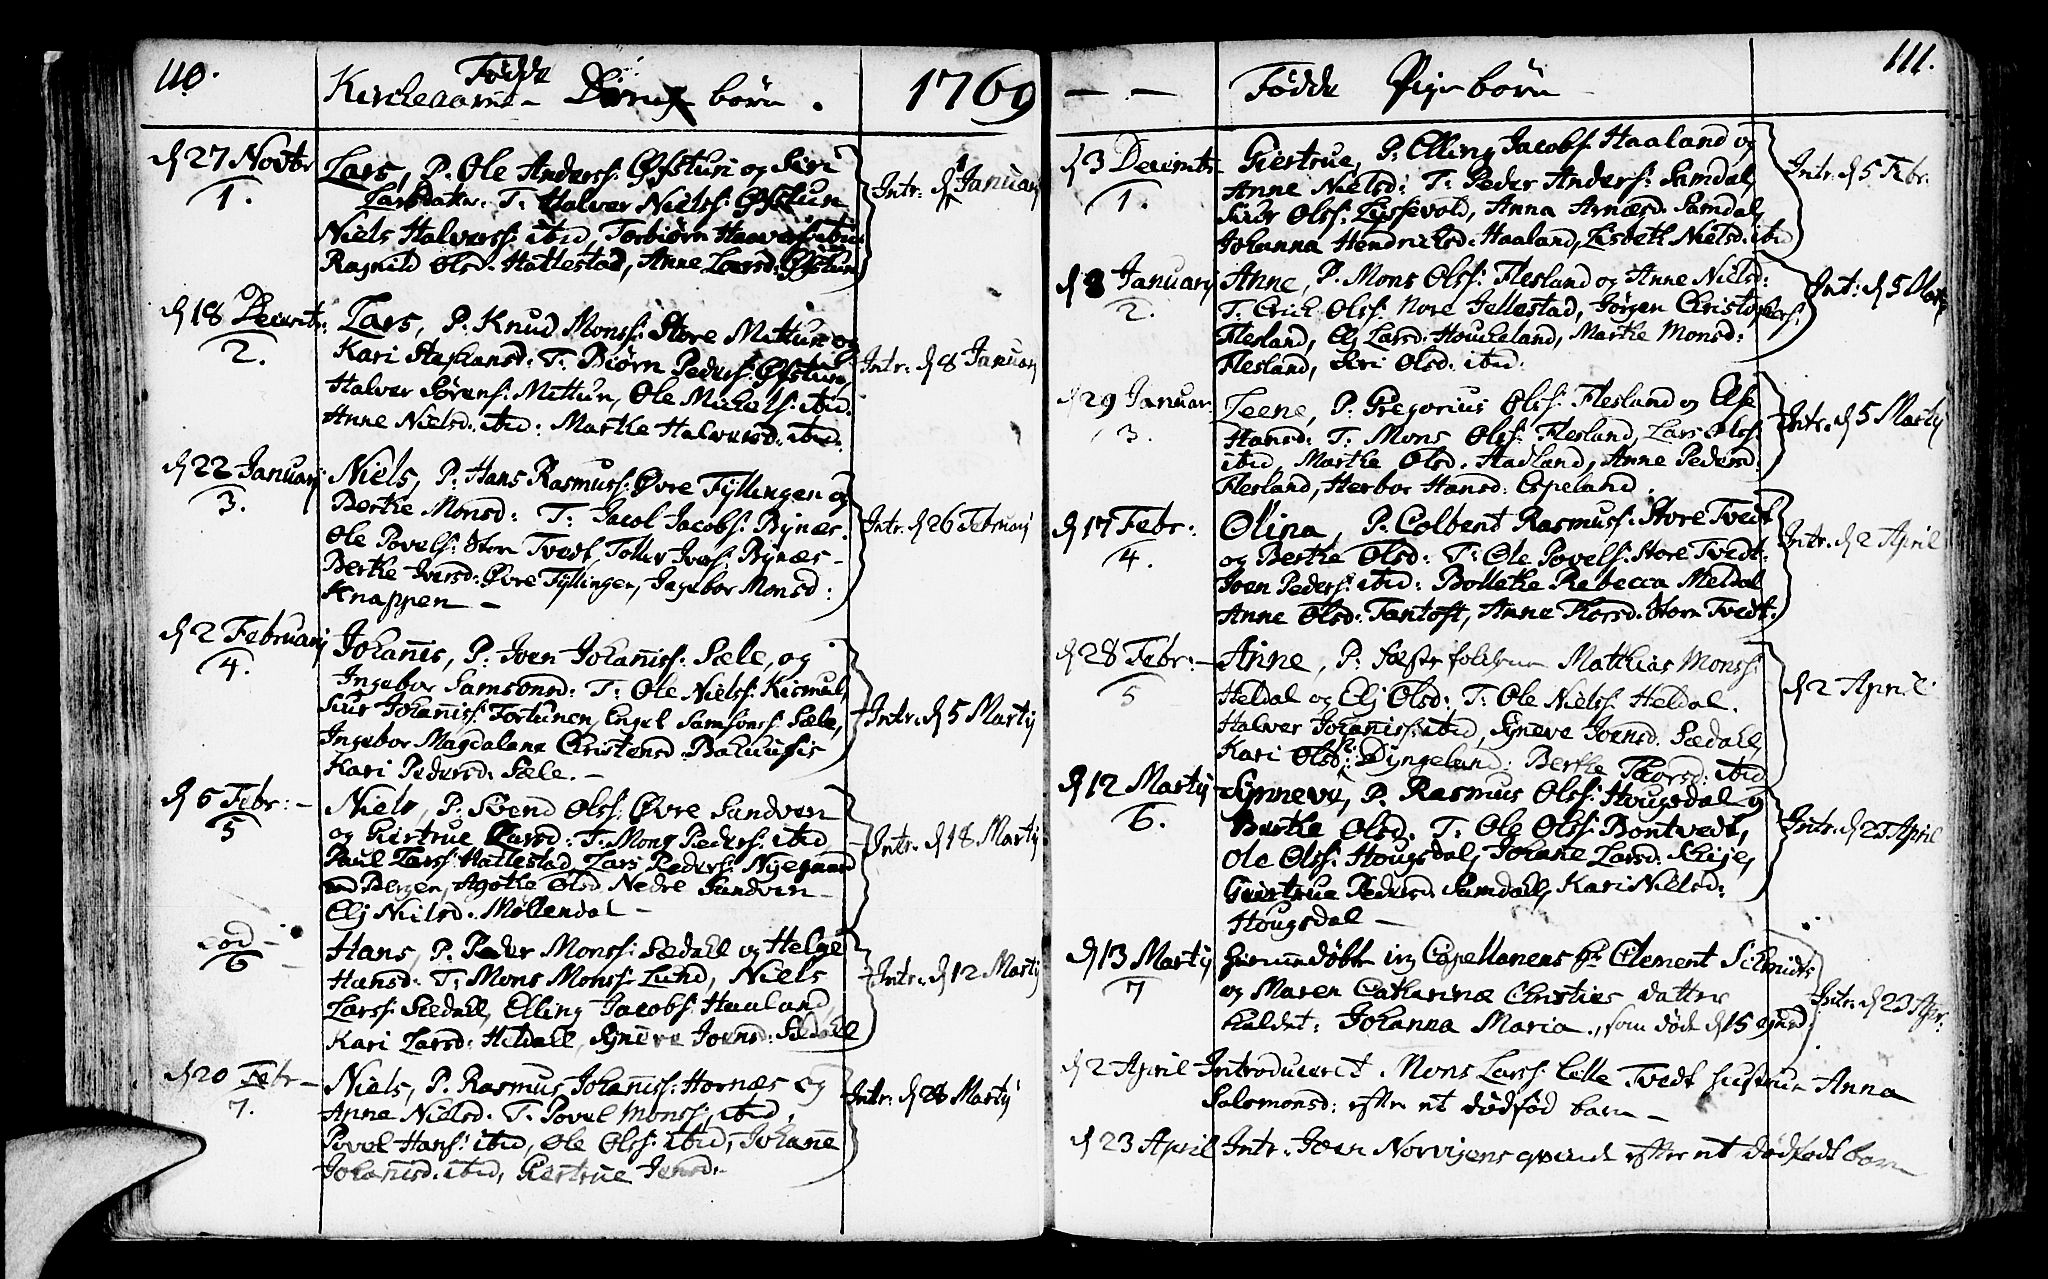 110.
Fødde
Kirckeaaret Drenge børn. 1769
d 27 Novbr
1.
Lars, P. Ole Anders: Øfstun og Siri
Larsdatter. T: Halver Niels: Øfstun
Niels Halvers: ibid, Torbiørn Haavers: ibid
Ragnild Olsd. Hattestad, Anne Larsd. Øfstun
Intr: d 1 Januarij
d 18 Decembr:
2.
Lars, P. Knud Mons: Store Mittun og
Kari Staphansd: T: Biørn Peders: Øfstun,
Halver Sørens: Mittun, Ole Michels: ibid.
Anne Nielsd. ibid: Marthe Halversd: ibid.
Intr: d 8 Januarij
d 22 Januarij
3.
Niels, P. Hans Rasmus: Øvre Fyllingen og
Berthe Monsd: T: Jacob Jacobs: Bynæs.
Ole Povels: Store Tvedt, Tollev Ivers: Bynæs –
Berthe Iversd: Øvre Fyllingen, Ingebor Monsd:
Knappen –
Intr. d 26 Februarij
d 2 Februarij
4.
Johannis, P: Joen Johannis: Sæle, og
Ingebor Samsonsd: T: Ole Niels: Kismul,
Siur Johannis: Fortunen, Engel Samsons: Sæle,
Ingebor Magdalane Christensd.
Kari Pedersd. Sæle. –
Intr. d 5 Martij
d 5 Febr: –
5
Niels, P: Svend Ols: Øvre Sandven
og Giertrue Larsd: T: Mons Peders: ibid
Paul Lars: Hattestad, Lars Peders: Nyegaard
ved Bergen, Agothe Olsd. Nedre Sandven –
Elj Nielsd. Møllendal –
Intr. d 18 Martij
eod –
6
Hans, P. Peder Mons: Sædall og Helge
Hansd: T: Mons Mons: Lund, Niels
Lars: Sædall, Elling Jacobs: Haaland
Kari Larsd: Heldall, Synneve Joensd: Sædall
Intr. d 12 Martij
d 20 Febr –
7.
Niels, P. Rasmus Johannis: Hornæs og
Anne Nielsd. T. Povel Mons: ibid,
Povol Hans: ibid, Ole Ols: ibid, Johanne
Johannisd. ibid, Giertrue Jensd.
Intr. d 28 Martij
111.
– – Fødde Pige børn –
d 3 Decembr
1.
Giertrue, P: Elling Jacobs: Haaland og
Anne Nielsd: T: Peder Anders: Samdal,
Siur Ols: Lyssevold, Anna Arnæsd. Samdal,
Johanna Hendrichsd. Haaland, Lisbeth Nielsd. ibid
Intr. d 5 Febr.
d 8 Januarij
2.
Anne, P. Mons Ols: Flesland og Anne Nielsd:
T. Erich Ols: Nore Jellestad, Jørgen Christophers:
Flesland, Elj Larsd: Houckeland, Marthe Monsd:
Flesland, Siri Olsd: ibid:
Int: d 5 Mart:
d 29 Januar.
3.
Leene, P: Gregorius Ols: Flesland og Else
Hansd: T: Mons Ols: Flesland, Lars Ols:
ibid, Marthe Olsd. Stadland, Anne Pedersd.
Flesland, Herbor Hansd: Espeland.
Intr. d 5 Martij
d 17 Febr:
4.
Olina, P. Colbent Rasmus: Store Tvedt
og Berthe Olsd: T: Ole Povels: Store Tvedt.
Joen Peders: ibid: Bollethe Rebecca Meldal
Anne Olsd: Fantoft, Anne Thorsd. Store Tvedt.
Intr. d 2 April
d 28 Febr: –
5
Anne, P. Mathias Mons:
Heldal og Elj Olsd: T: Ole Niels: Heldal.
Halver Johannis: ibid, Syneve Joensd. Sædall,
Kari Olsd: Dyngeland: Berthe Thorsd: ibid
d 2 April
d 12 Martij
6.
Synneve, P. Rasmus Ols: Hougsdal og
Berthe Olsd. T: Ole Ols: Bontvedt,
Ole Ols: Hougsdal, Johane Larsd: Schije,
Geirtrue Pedersd. Samdall, Kari Nielsd:
Hougsdal –
Intr. d 23 April
d 13 Martij
7
Hiemmedøbte ieg Capellanens Hr Clement Schmidts
og Maren Catharinæ Christies datter
kaldet: Johanna Maria, som døde d 15
Intr. d 23 Apr:
d 2 April Introduceret Mons Lars: Lille Tvedt hustrue Anna
Salomonsd: efter et dødfød barn –
d 23 April Intr. Joen Norvigens qvinde efter et dødfødt barn